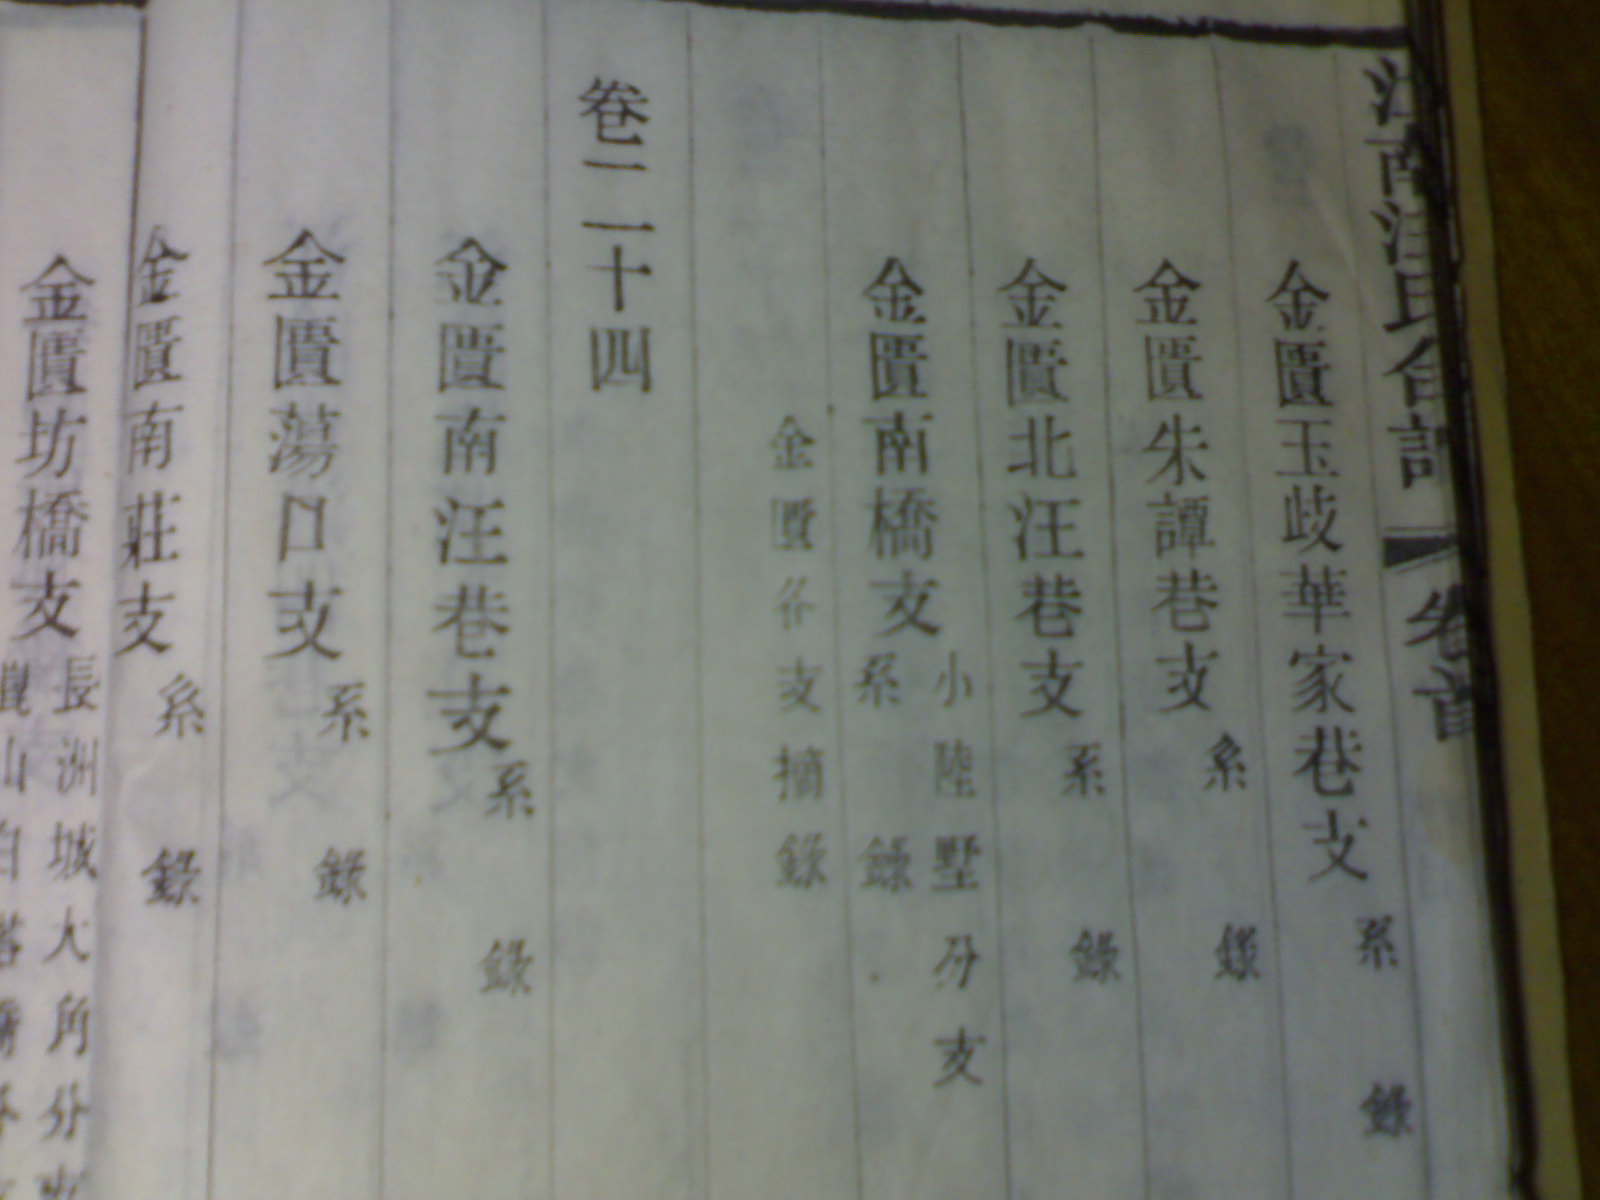 江南汪氏合譜 卷首
金匱玉歧華家巷支 系錄
金匱朱譚巷支 系錄
金匱北汪巷支 系錄
金匱南橋支 小陸墅分支 系錄
金匱各支摘錄
卷二十四
金匱南汪巷支 系錄
金匱蕩口支 系錄
金匱南莊支 系錄
金匱坊橋支 長洲城大角分支